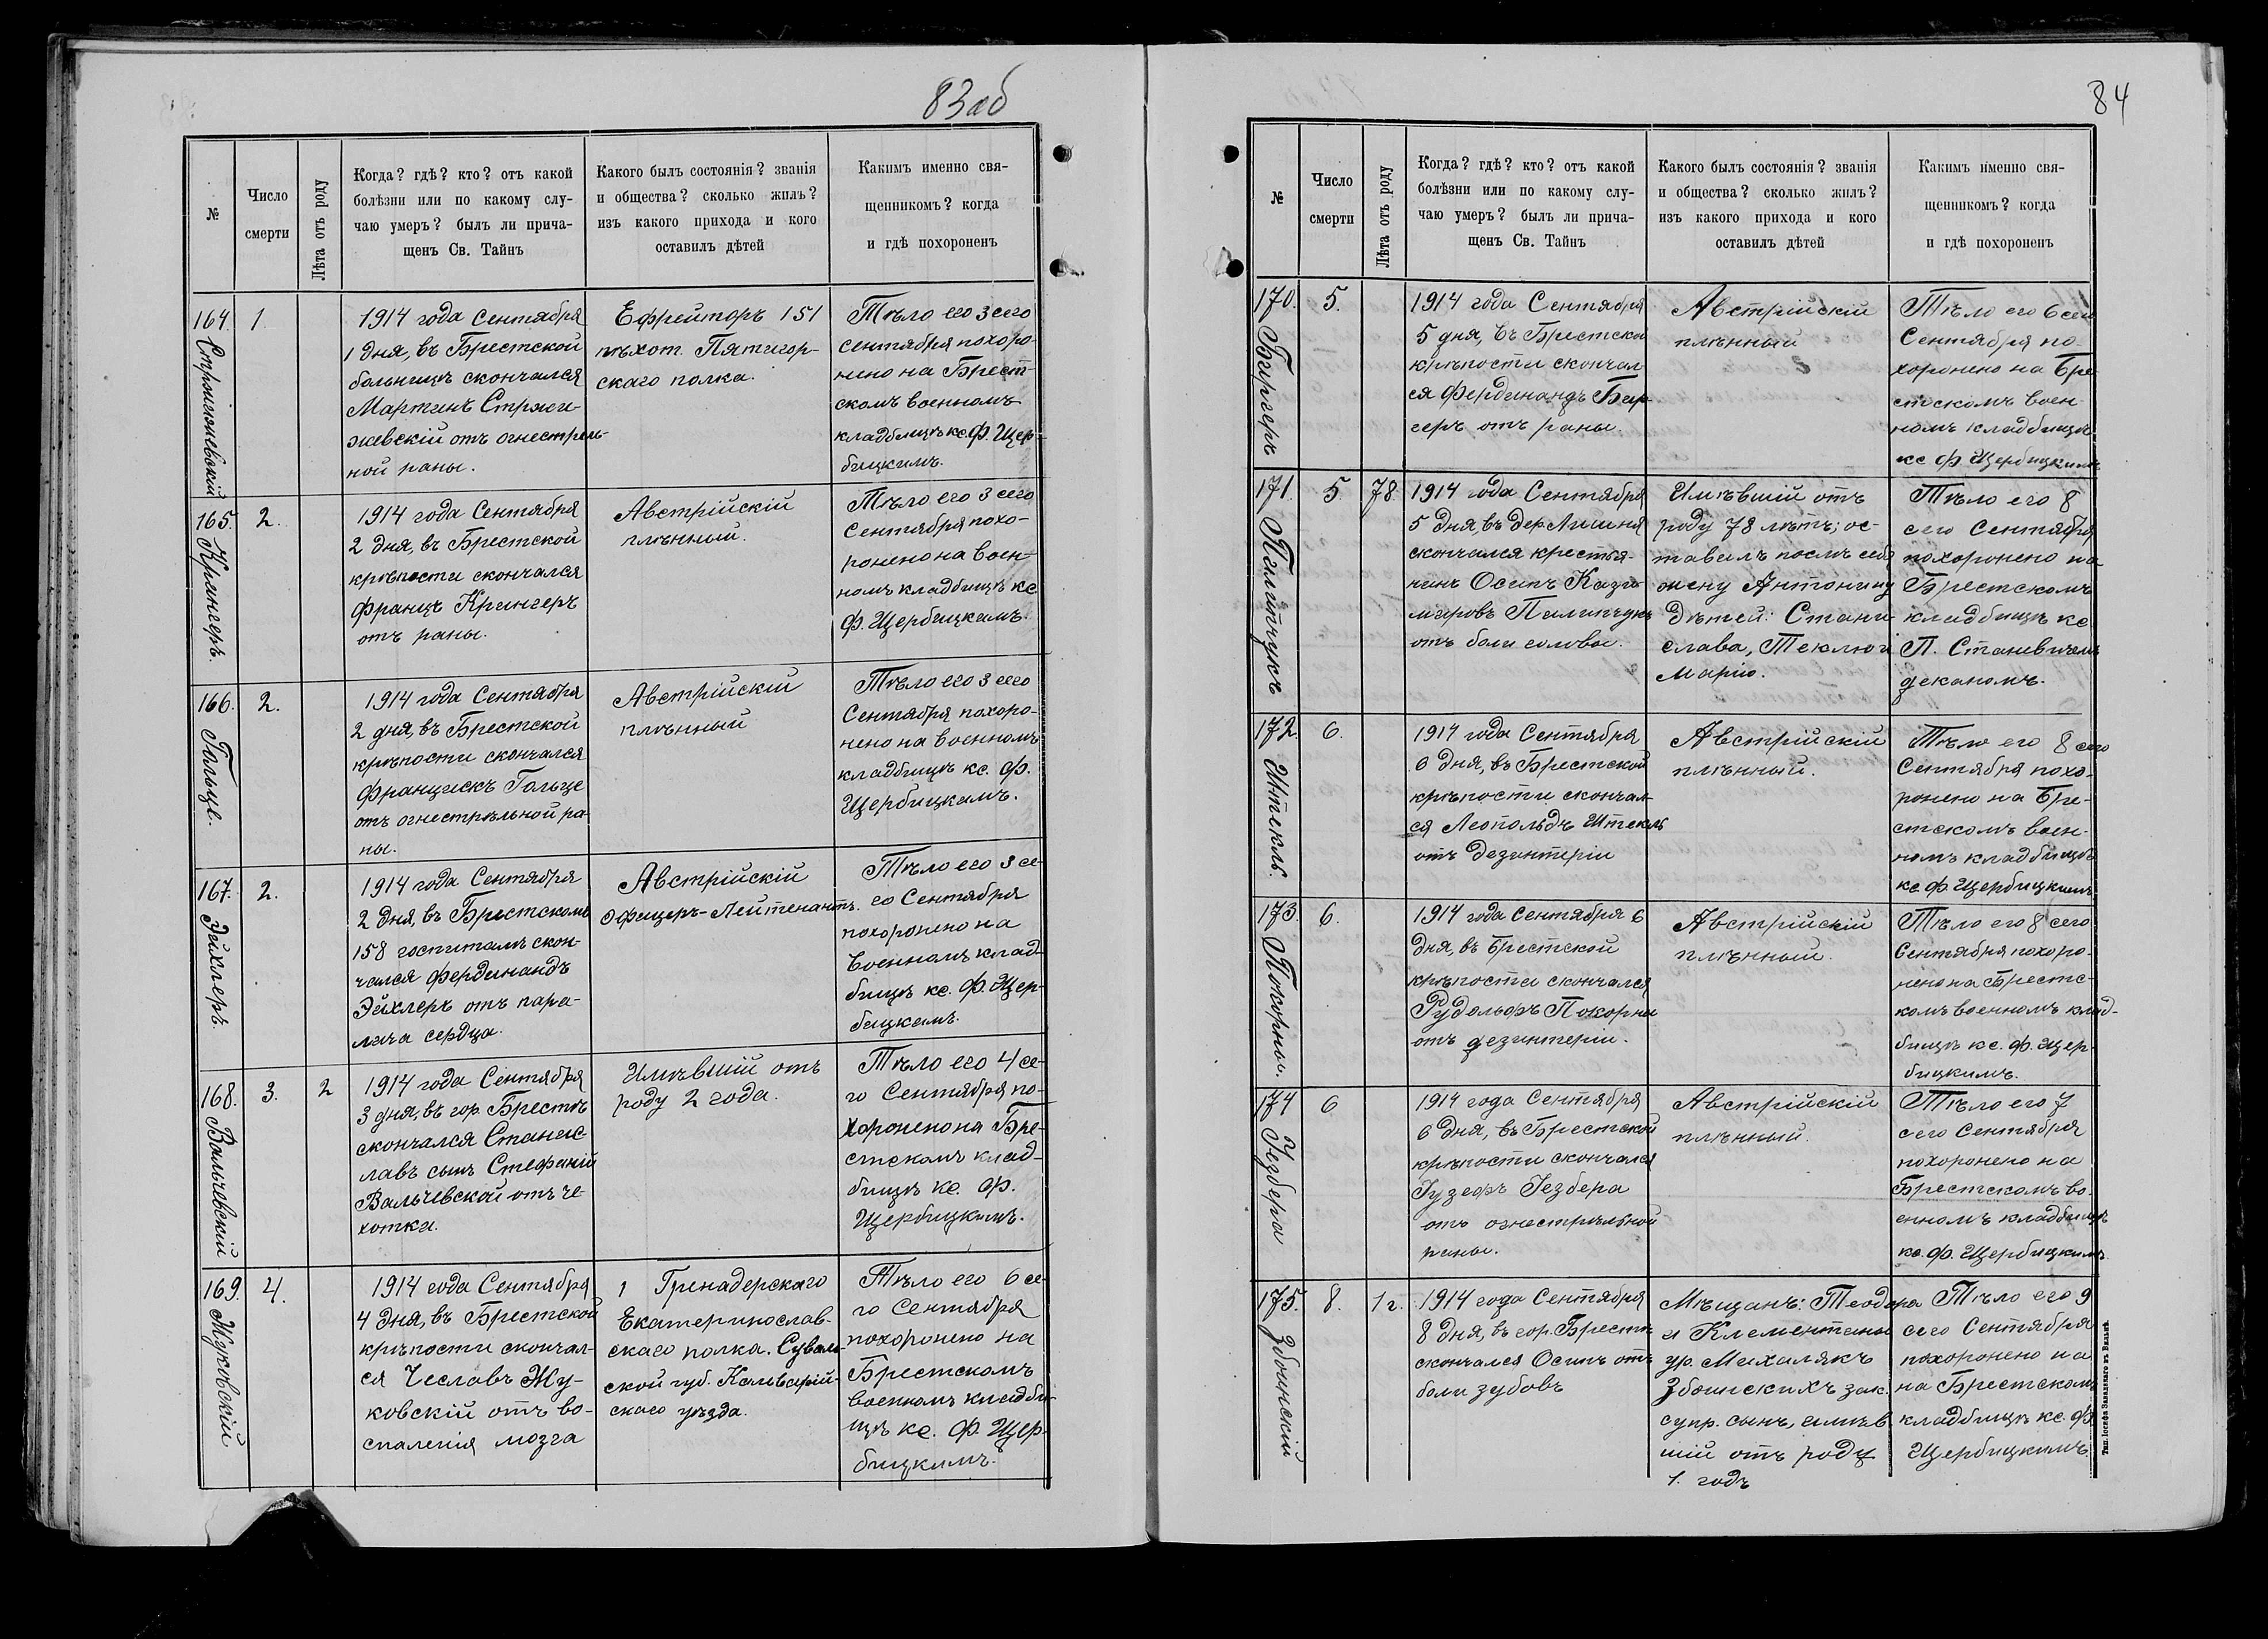 83 об
№
Число
смерти
Лѣта отъ роду
Когда? гдѣ? кто? отъ какой
болѣзни или по какому слу-
чаю умеръ? былъ ли прича-
щенъ Св. Тайнъ
Какого былъ состоянія? званія
и общества? сколько жилъ?
изъ какого прихода и кого
оставилъ дѣтей
Какимъ именно свя-
щенникомъ? когда
и гдѣ похороненъ
164.
1.
1914 года Сентября
1 дня, въ Брестской
больницѣ скончался
Мартинъ
отъ огнестрѣль-
ной раны.
Ефрейторъ 151
пѣхот. Пятигор-
скаго полка.
Тѣло его 3 сего
сентября похоро-
нено на Брест-
скомъ военномъ
кладбищѣ кс. Ф. Щер-
бицкимъ.
165.
Крингеръ.
2.
1914 года Сентября
2 дня, въ Брестской
крѣпости скончался
Францъ Крингеръ
отъ раны.
Австрійскій
плѣнный.
Тѣло его 3 сего
Сентября похо-
ронено на воен-
номъ кладбищѣ кс
Ф. Щербицкимъ.
166.
Гольце.
2.
1914 года Сентября
2 дня, въ Брестской
крѣпости скончался
Францискъ Гольце
отъ огнестрѣльной ра-
ны.
Австрійскій
плѣнный
Тѣло его 3 сего
Сентября похоро-
нено на военномъ
кладбищѣ кс. Ф.
Щербицкимъ.
167.
Эйхлеръ.
2.
1914 года Сентября
2 дня, въ Брестскомъ
158 госпиталѣ скон-
чался Фердинандъ
Эйхлеръ отъ пара-
лича сердца.
Австрійскій
офицеръ-Лейтенантъ.
Тѣло его 3 се-
го Сентября
похоронено на
военномъ клад-
бищѣ кс. Ф. Щер-
бицкимъ.
168.
Вальчевскій
3.
2
1914 года Сентября
3 дня, въ гор. Брестѣ
скончался Станис-
лавъ сынъ Стефаніи
Вальчевской отъ че-
хотки.
Имѣвшій отъ
роду 2 года.
Тѣло его 4 се-
го Сентября по-
хоронено на Бре-
стскомъ клад-
бищѣ кс. Ф.
Щербицкимъ.
169.
Жуковскій
4.
1914 года Сентября
4 дня, въ Брестской
крѣпости скончал-
ся Чеславъ Жу-
ковскій отъ во-
спаленія мозга
1 Гренадерскаго
Екатеринослав-
скаго полка. Сувал-
ской губ. Кальварій-
скаго уѣзда.
Тѣло его 6 се-
го Сентября
похоронено на
Брестскомъ
военномъ кладби-
щѣ кс. Ф. Щер-
бицкимъ.
84
№
Число
смерти
Лѣта отъ роду
Когда? гдѣ? кто? отъ какой
болѣзни или по какому слу-
чаю умеръ? былъ ли прича-
щенъ Св. Тайнъ
Какого былъ состоянія? званія
и общества? сколько жилъ?
изъ какого прихода и кого
оставилъ дѣтей
Какимъ именно свя-
щенникомъ? когда
и гдѣ похороненъ
170.
Бергеръ
5.
1914 года Сентября
5 дня, въ Брестской
крѣпости скончал-
ся Фердинандъ Бер-
геръ отъ раны.
Австрійскій
плѣнный
Тѣло его 6 сего
Сентября по-
хоронено на Бре-
стскомъ воен-
номъ кладбищѣ
кс Ф. Щербицкимъ
171.
Пилипчукъ
5
78.
1914 года Сентября
5 дня, въ дер.
скончался крестья-
нинъ Осипъ Кази-
міровъ Пилипчукъ
отъ боли головы.
Имѣвшій отъ
роду 78 лѣтъ; ос-
тавилъ послѣ себя
жену Антонину
Дѣтей: Стани-
слава, Теклю и
Марію.
Тѣло его 8
сего Сентября
похоронено на
Брестскомъ
кладбищѣ кс
П. Станевичемъ
деканомъ.
172.
Штекль.
6.
1914 года Сентября
6 дня, въ Брестской
крѣпости скончал-
ся Леопольдъ Штекль
отъ дезинтеріи
Австрійскій
плѣнный.
Тѣло его 8 сего
Сентября похо-
ронено на Бре-
стскомъ воен-
номъ кладбищѣ
кс Ф. Щербицкимъ
173.
Покорны.
6.
1914 года Сентября 6
дня, въ Брестской
крѣпости скончался
Рудольфъ Покорны
отъ дезинтеріи.
Австрійскій
плѣнный.
Тѣло его 8 сего
Сентября похоро-
нено на Брестс-
комъ военномъ клад-
бищѣ кс. Ф. Щер-
бицкимъ.
174
Гезбера
6
1914 года Сентября
6 дня, въ Брестской
крѣпости скончался
Іузефъ Гезбера
отъ огнестрѣльной
раны.
Австрійскій
плѣнный.
Тѣло его 7
сего Сентября
похоронено на
Брестскомъ во-
енномъ кладбищѣ
кс. Ф. Щербицкимъ
175.
Збоинскій
8.
1 г.
1914 года Сентября
8 дня, въ гор. Брестѣ
скончался Осипъ отъ
боли зубовъ
Мѣщанъ: Теодора
и Клементины
ур. Михалякъ
Збоинскихъ зак.
супр. сынъ, имѣв
шій отъ роду
1. годъ
Тѣло его 9
сего Сентября
похоронено на
на Брестскомъ
кладбищѣ кс. Ф.
Щербицкимъ
Тип. Іосифа Завадзкаго въ Вильнѣ.